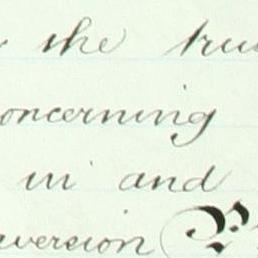 the tru
oncerning
in and
version